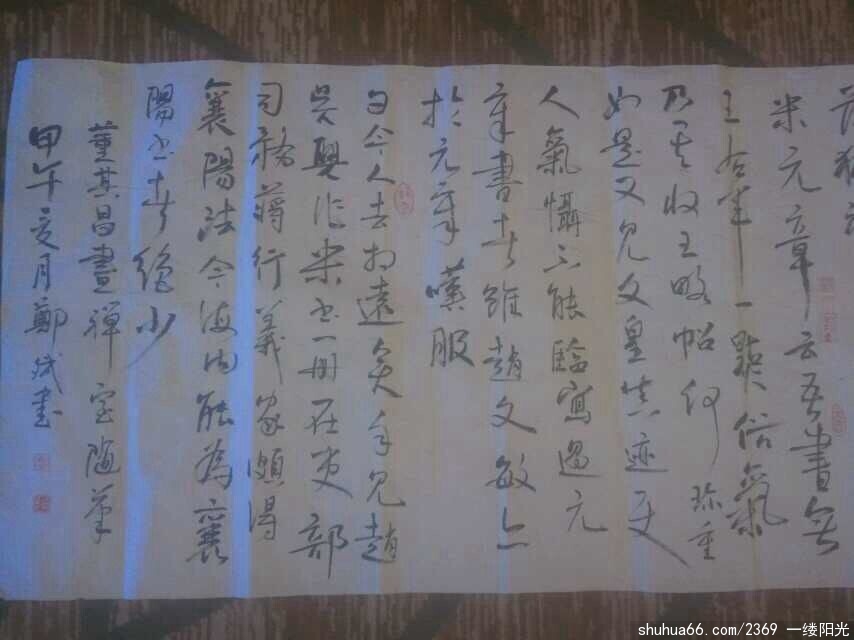 米元章云吾書無
王右軍一點俗氣
乃其收王略帖何珎重
如是又見文皇真迹使
人氣慑不能臨寫過元
章書者雖趙文敏亦
於元章嘆服
曰今人去古遠矣余見趙
吳興作米書一冊在吏部
司務蔣行義家頗得
襄陽法今海内能為襄
陽書者絕少
董其昌畫禪室隨筆
甲午亥月鄭斌書
shuhua66.com/2369 一缕阳光